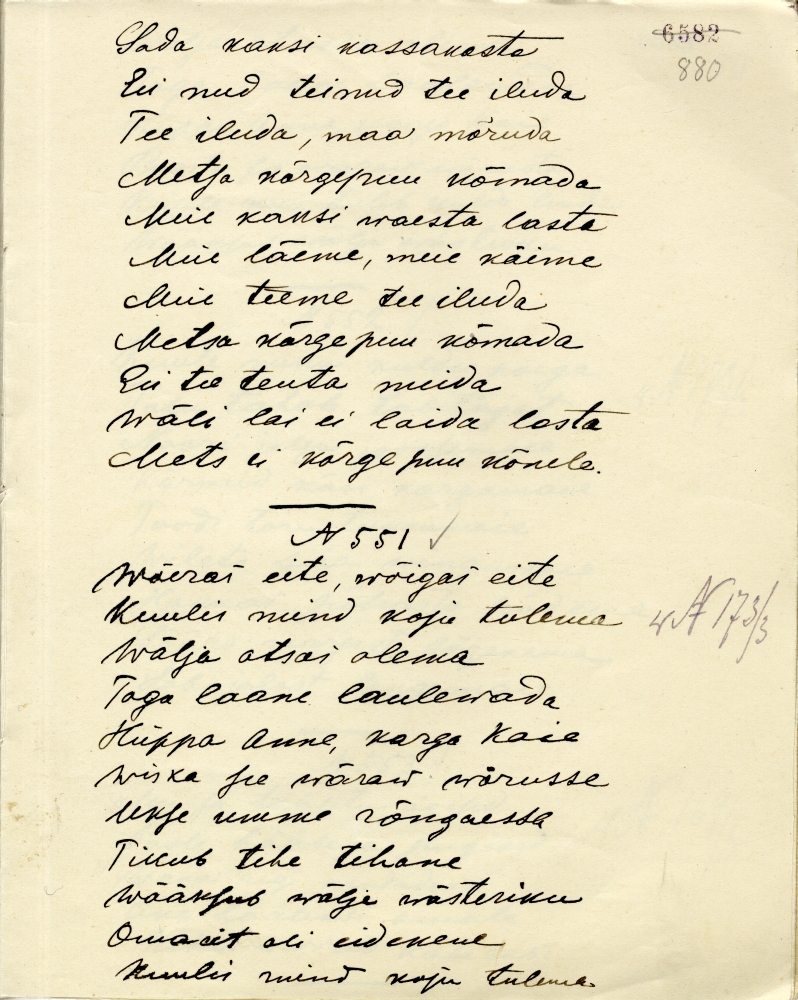 6582
880
Sada kaksi kassakasta
Ei nud teinud tee iluda
Tee iluda, maa mõruda
Metsa kõrgepuu kõmada
Meie kaksi waesta lasta
Meie läeme, meie käime
Meie teeme tee iluda
Metsa kõrge puu kõmada
Ei tee teuta meida
Wäli lai ei laida lasta
Mets ei kõrge puu kõnele.
N 551 ✓
Wõeras eite, wõigas eite
Kuulis mind koju tulema
W N 173/3
Wälja otsas olema
Taga laane laulewada
Hüppa Anne, karga Kaie
Wiska see wäraw wõrusse
Ukse umme rõngaessa
Tiiub tihe tihane
Wääksub wälje wästeriku
Omaeit oli eidekene
Kuulis mind koju tulema.